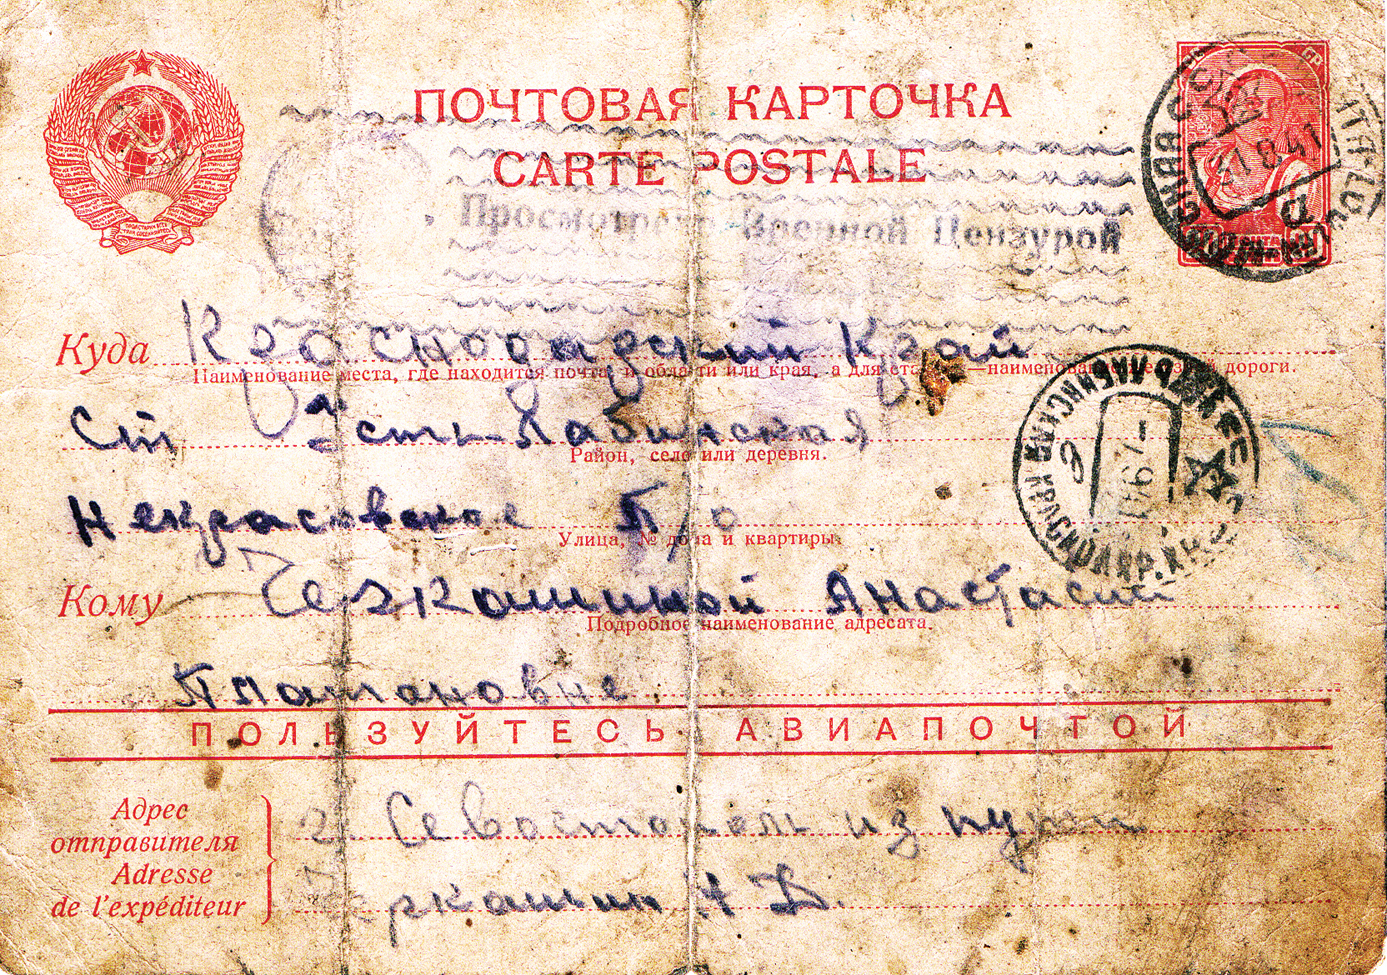 ПОЧТОВАЯ КАРТОЧКА
CARTE POSTALE
Просмотрено Военной Цензурой
21.8.41
Куда Краснодарский Край
Наименование места, где находится почта, и области или края, а для станций—наименование железной дороги.
Ст Усть-Лабинская
Район, село или деревня.
Некрасовское п/о
Улица, № дома и квартиры.
Кому Черкашиной Анастасии
Подробное наименование адресата.
Платоновне
ПОЛЬЗУЙТЕСЬ АВИАПОЧТОЙ
Адрес
отправителя
Adresse
de l'expéditeur
г. Севостополь из пути
Черкашин А Д.